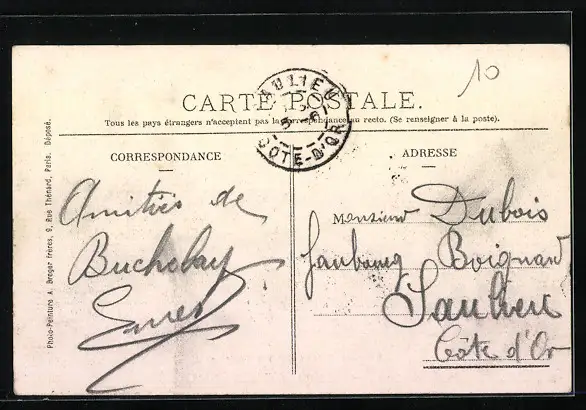 10
AULIEU
CÔTE-D'OR
CARTE POSTALE.
Tous les pays étrangers n'acceptent pas la correspondance au recto. (Se renseigner à la poste).
CORRESPONDANCE
Amitiés de
ADRESSE
Monsieur Dubois
faubourg
Saulieu
Côte d'Or
Photo-Peinture A. Breger frères, 9, Rue Thénard, Paris. Déposé.